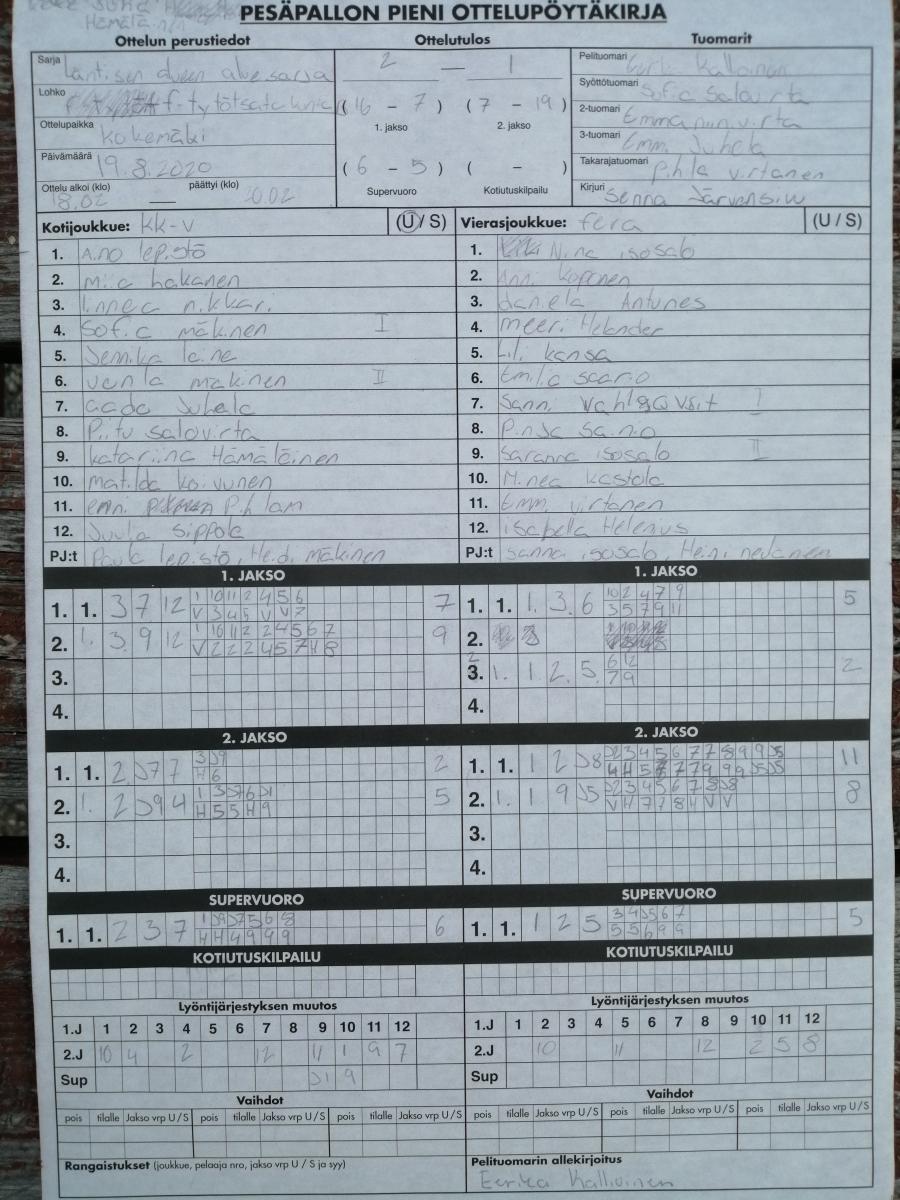 PESÄPALLON PIENI OTTELUPÖYTÄKIRJA
Ottelun perustiedot
Ottelutulos
Tuomarit
Sarja
Läntisen alueen aluesarja
2 — 1
Pelituomari
Lohko
f-tytöt satakunta
(16 - 7) (7 - 19)
1. jakso 2. jakso
Syöttötuomari Sofia Salovirta
2-tuomari Emma niinivirta
Ottelupaikka Kokemäki
3-tuomari Emmi Juhela
Päivämäärä 19.8.2020
(6 - 5) ( - )
Supervuoro Kotiutuskilpailu
Takarajatuomari Pihla virtanen
Ottelu alkoi (klo) 18.02 — päättyi (klo) 20.02
Kirjuri Senna
Kotijoukkue: KK-V (U / S)
Vierasjoukkue: fera (U / S)
1. Aino lepistö
1. Nina isosalo
2. Mia hakanen
2. Anni koponen
3. linnea nikkari
3. daniela Antunes
4. Sofia mäkinen I
4. meeri Helander
5. Jemika laine
5. Lili kansa
6. venla makinen II
6. Emilia saario
7. aada Juhela
7. Sanni I
8. Piitu salovirta
8. Pinja sainio
9. katariina Hämäläinen
9. Saranna isosalo II
10. matilda koivunen
10. Minea kastola
11. emni Pihlam
11. Emmi virtanen
12. Juulia sippola
12. isabella Helenius
PJ:t Paula lepistö, Heidi mäkinen
PJ:t sanna isosalo, Heini nevanen
1. JAKSO
1. JAKSO
1. 1. 3 7 12
1 10 11 2 4 5 6
V 3 4 5 V V 7
7
1. 1. 1. 3. 6
10 2 4 7 9
3 5 7 9 11
5
2. 1. 3. 9 12
1 10 11 2 2 4 5 6 7
V 2 2 2 4 5 7 H 8
9
2.
3.
3. 1. 1 2. 5.
6 12
7 9
2
4.
4.
2. JAKSO
2. JAKSO
1. 1. 2. J7 7
3 J9
H 6
2
1. 1. 1 2 J8
J2 3 4 5 6 7 7 8 9 9 J5
11
2. 1. 2 J9 4
1 3 J7 6 J1
H 5 5 H 9
5
2. 1. 1 9 J5
J2 3 4 5 6 7 8 J8
V H 7 7 8 H V V
8
3.
3.
4.
4.
SUPERVUORO
SUPERVUORO
1. 1. 2 3 7
1 J9 J7 5 6 8
H H 4 9 9 9
6
1. 1. 1 2 5
3 4 J5 6 7
5 5 6 9 9
5
KOTIUTUSKILPAILU
KOTIUTUSKILPAILU
Lyöntijärjestyksen muutos
Lyöntijärjestyksen muutos
1.J 1 2 3 4 5 6 7 8 9 10 11 12
1.J 1 2 3 4 5 6 7 8 9 10 11 12
2.J 10 4 2 12 11 1 9 7
2.J 10 11 12 2 5 8
Sup J1 9
Sup
Vaihdot
Vaihdot
pois tilalle Jakso vrp U / S pois tilalle Jakso vrp U / S pois tilalle Jakso vrp U / S
pois tilalle Jakso vrp U / S pois tilalle Jakso vrp U / S pois tilalle Jakso vrp U / S
Rangaistukset (joukkue, pelaaja nro, jakso vrp U / S ja syy)
Pelituomarin allekirjoitus
Eerika Kallioinen